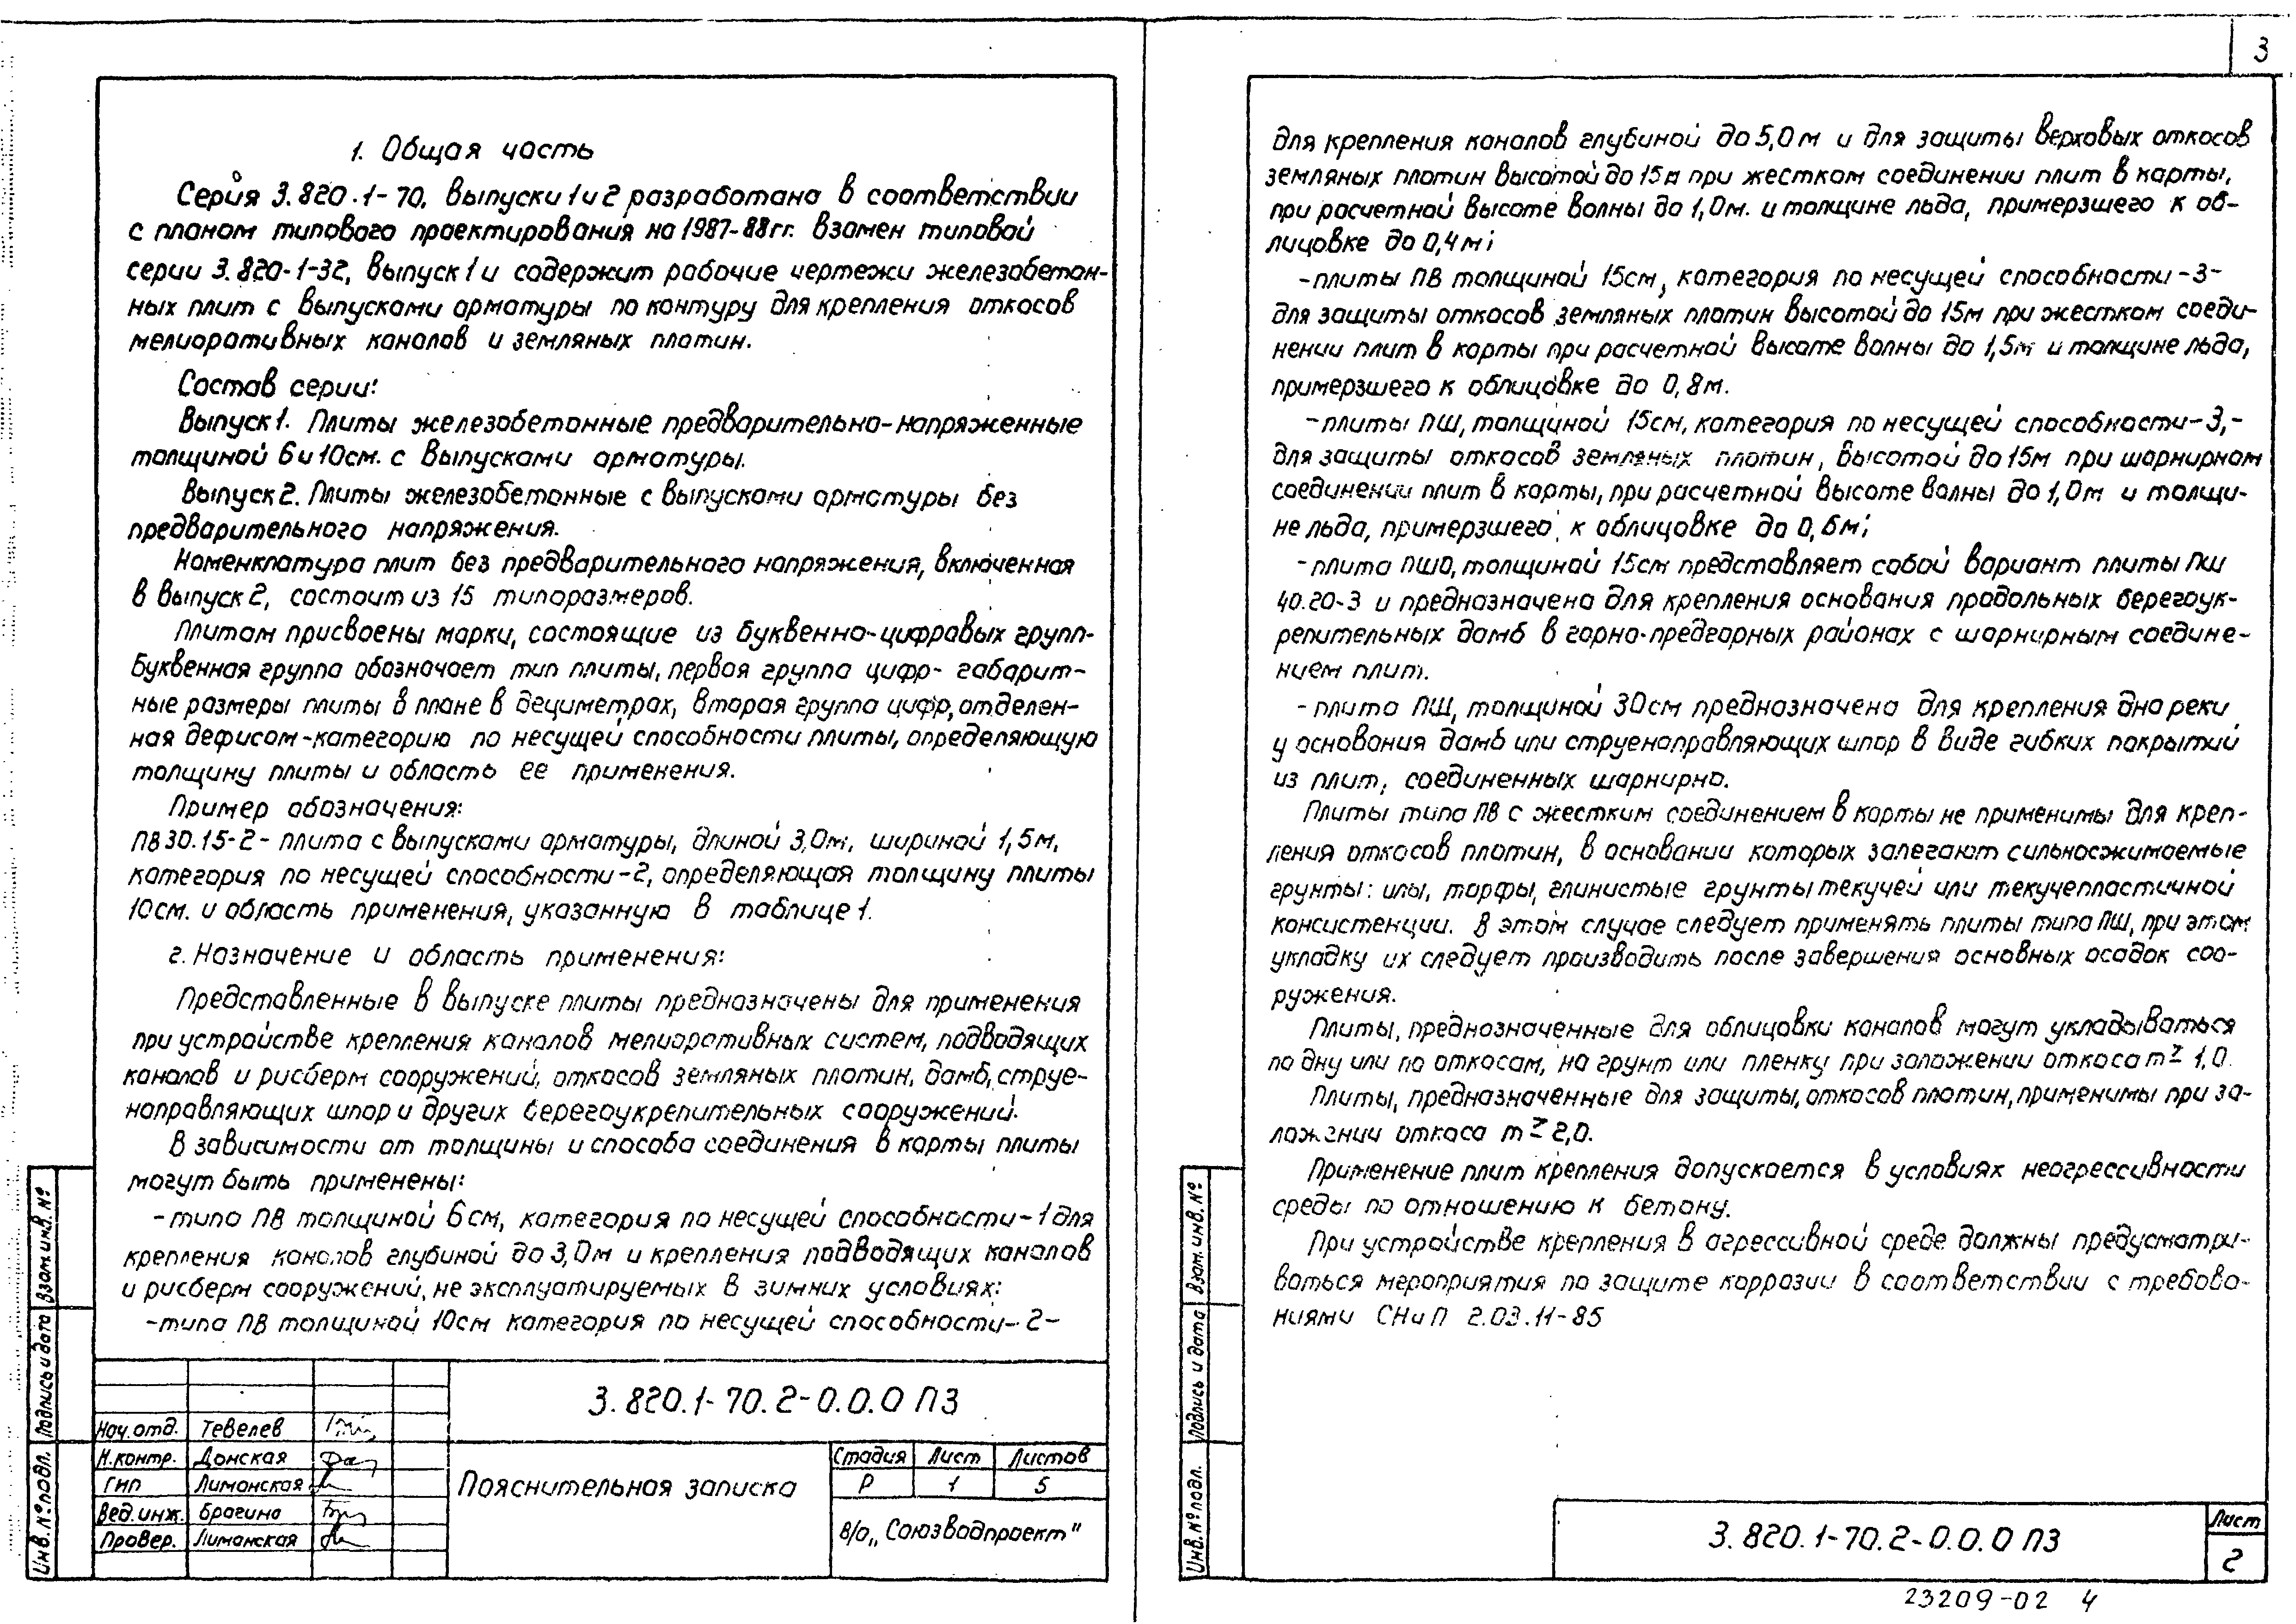 1. Общая часть
Серия 3.820.1-70, выпуски 1 и 2 разработана в соответствии
с планом типового проектирования на 1987-88гг. взамен типовой
серии 3.820-1-32, выпуск 1 и содержит рабочие чертежи железобетон-
ных плит с выпусками арматуры по контуру для крепления откосов
мелиоративных каналов и земляных плотин.
Состав серии:
Выпуск 1. Плиты железобетонные предварительно-напряженные
толщиной 6 и 10см. с выпусками арматуры.
Выпуск 2. Плиты железобетонные с выпусками арматуры без
предварительного напряжения.
Номенклатура плит без предварительного напряжения, включенная
в выпуск 2, состоит из 15 типоразмеров.
Плитам присвоены марки, состоящие из буквенно-цифровых групп.
Буквенная группа обозначает тип плиты, первая группа цифр- габарит-
ные размеры плиты в плане в дециметрах, вторая группа цифр, отделен-
ная дефисом-категорию по несущей способности плиты, определяющую
толщину плиты и область ее применения.
Пример обозначения:
ПВ30.15-2- плита с выпусками арматуры, длиной 3,0м, шириной 1,5м,
категория по несущей способности-2, определяющая толщину плиты
10см. и область применения, указанную в таблице 1.
2. Назначение и область применения:
Представленные в выпуске плиты предназначены для применения
при устройстве крепления каналов мелиоративных систем, подводящих
каналов и рисберм сооружений, откосов земляных плотин, дамб, струе-
направляющих шпор и других берегоукрепительных сооружений.
В зависимости от толщины и способа соединения в карты плиты
могут быть применены:
-типа ПВ толщиной 6см, категория по несущей способности-1 для
крепления каналов глубиной до 3,0м и крепления подводящих каналов
и рисберм сооружений, не эксплуатируемых в зимних условиях:
-типа ПВ толщиной 10см категория по несущей способности-2-
3.820.1-70.2-0.0.0 ПЗ
Нач. отд. Тевелев
Н.контр. Донская
ГИП Лиманская
Вед. инж. Брагина
Провер. Лиманская
Пояснительная записка
Стадия Лист Листов
Р 1 5
В/О „Союзводпроект"
Инв. № подл. Подпись и дата Взам. инв. №
3
для крепления каналов глубиной до 5,0м и для защиты верховых откосов
земляных плотин высотой до 15м при жестком соединении плит в карты,
при расчетной высоте волны до 1,0м. и толщине льда, примерзшего к об-
лицовке до 0,4м;
-плиты ПВ толщиной 15см, категория по несущей способности-3-
для защиты откосов земляных плотин высотой до 15м при жестком соеди-
нении плит в карты при расчетной высоте волны до 1,5м и толщине льда,
примерзшего к облицовке до 0,8м.
-плиты ПШ, толщиной 15см, категория по несущей способности-3,-
для защиты откосов земляных плотин, высотой до 15м при шарнирном
соединении плит в карты, при расчетной высоте волны до 1,0м и толщи-
не льда, примерзшего к облицовке до 0,6м;
-плита ПШО, толщиной 15см представляет собой вариант плиты ПШ
40.20-3 и предназначена для крепления основания продольных берегоук-
репительных дамб в горно-предгорных районах с шарнирным соедине-
нием плит.
-плита ПШ, толщиной 30см предназначена для крепления дна реки
у основания дамб или струенаправляющих шпор в виде гибких покрытий
из плит, соединенных шарнирно.
Плиты типа ПВ с жестким соединением в карты не применимы для креп-
ления откосов плотин, в основании которых залегают сильносжимаемые
грунты: илы, торфы, глинистые грунты текучей или текучепластичной
консистенции. В этом случае следует применять плиты типа ПШ, при этом
укладку их следует производить после завершения основных осадок соо-
ружения.
Плиты, предназначенные для облицовки каналов могут укладываться
по дну или по откосам, на грунт или пленку при заложении откоса m ≥ 1,0.
Плиты, предназначенные для защиты, откосов плотин, применимы при за-
ложении откоса m ≥ 2,0.
Применение плит крепления допускается в условиях неагрессивности
среды по отношению к бетону.
При устройстве крепления в агрессивной среде должны предусматри-
ваться мероприятия по защите коррозии в соответствии с требова-
ниями СНиП 2.03.11-85
Инв. № подл. Подпись и дата Взам. инв. №
3.820.1-70.2-0.0.0 ПЗ
Лист
2
23209-02 4